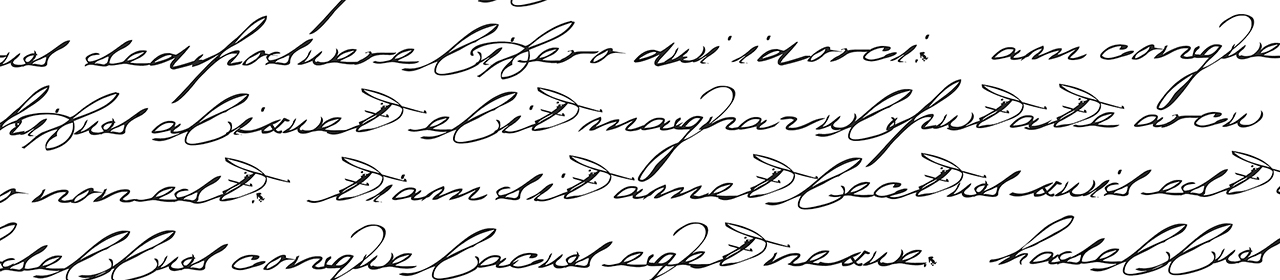 sed posuere libero dui id orci. am congue
aliquet elit magna vulputate arcu
o non est. tiam sit amet lectus quis est
sellus congue lacus eget neque. hasellus